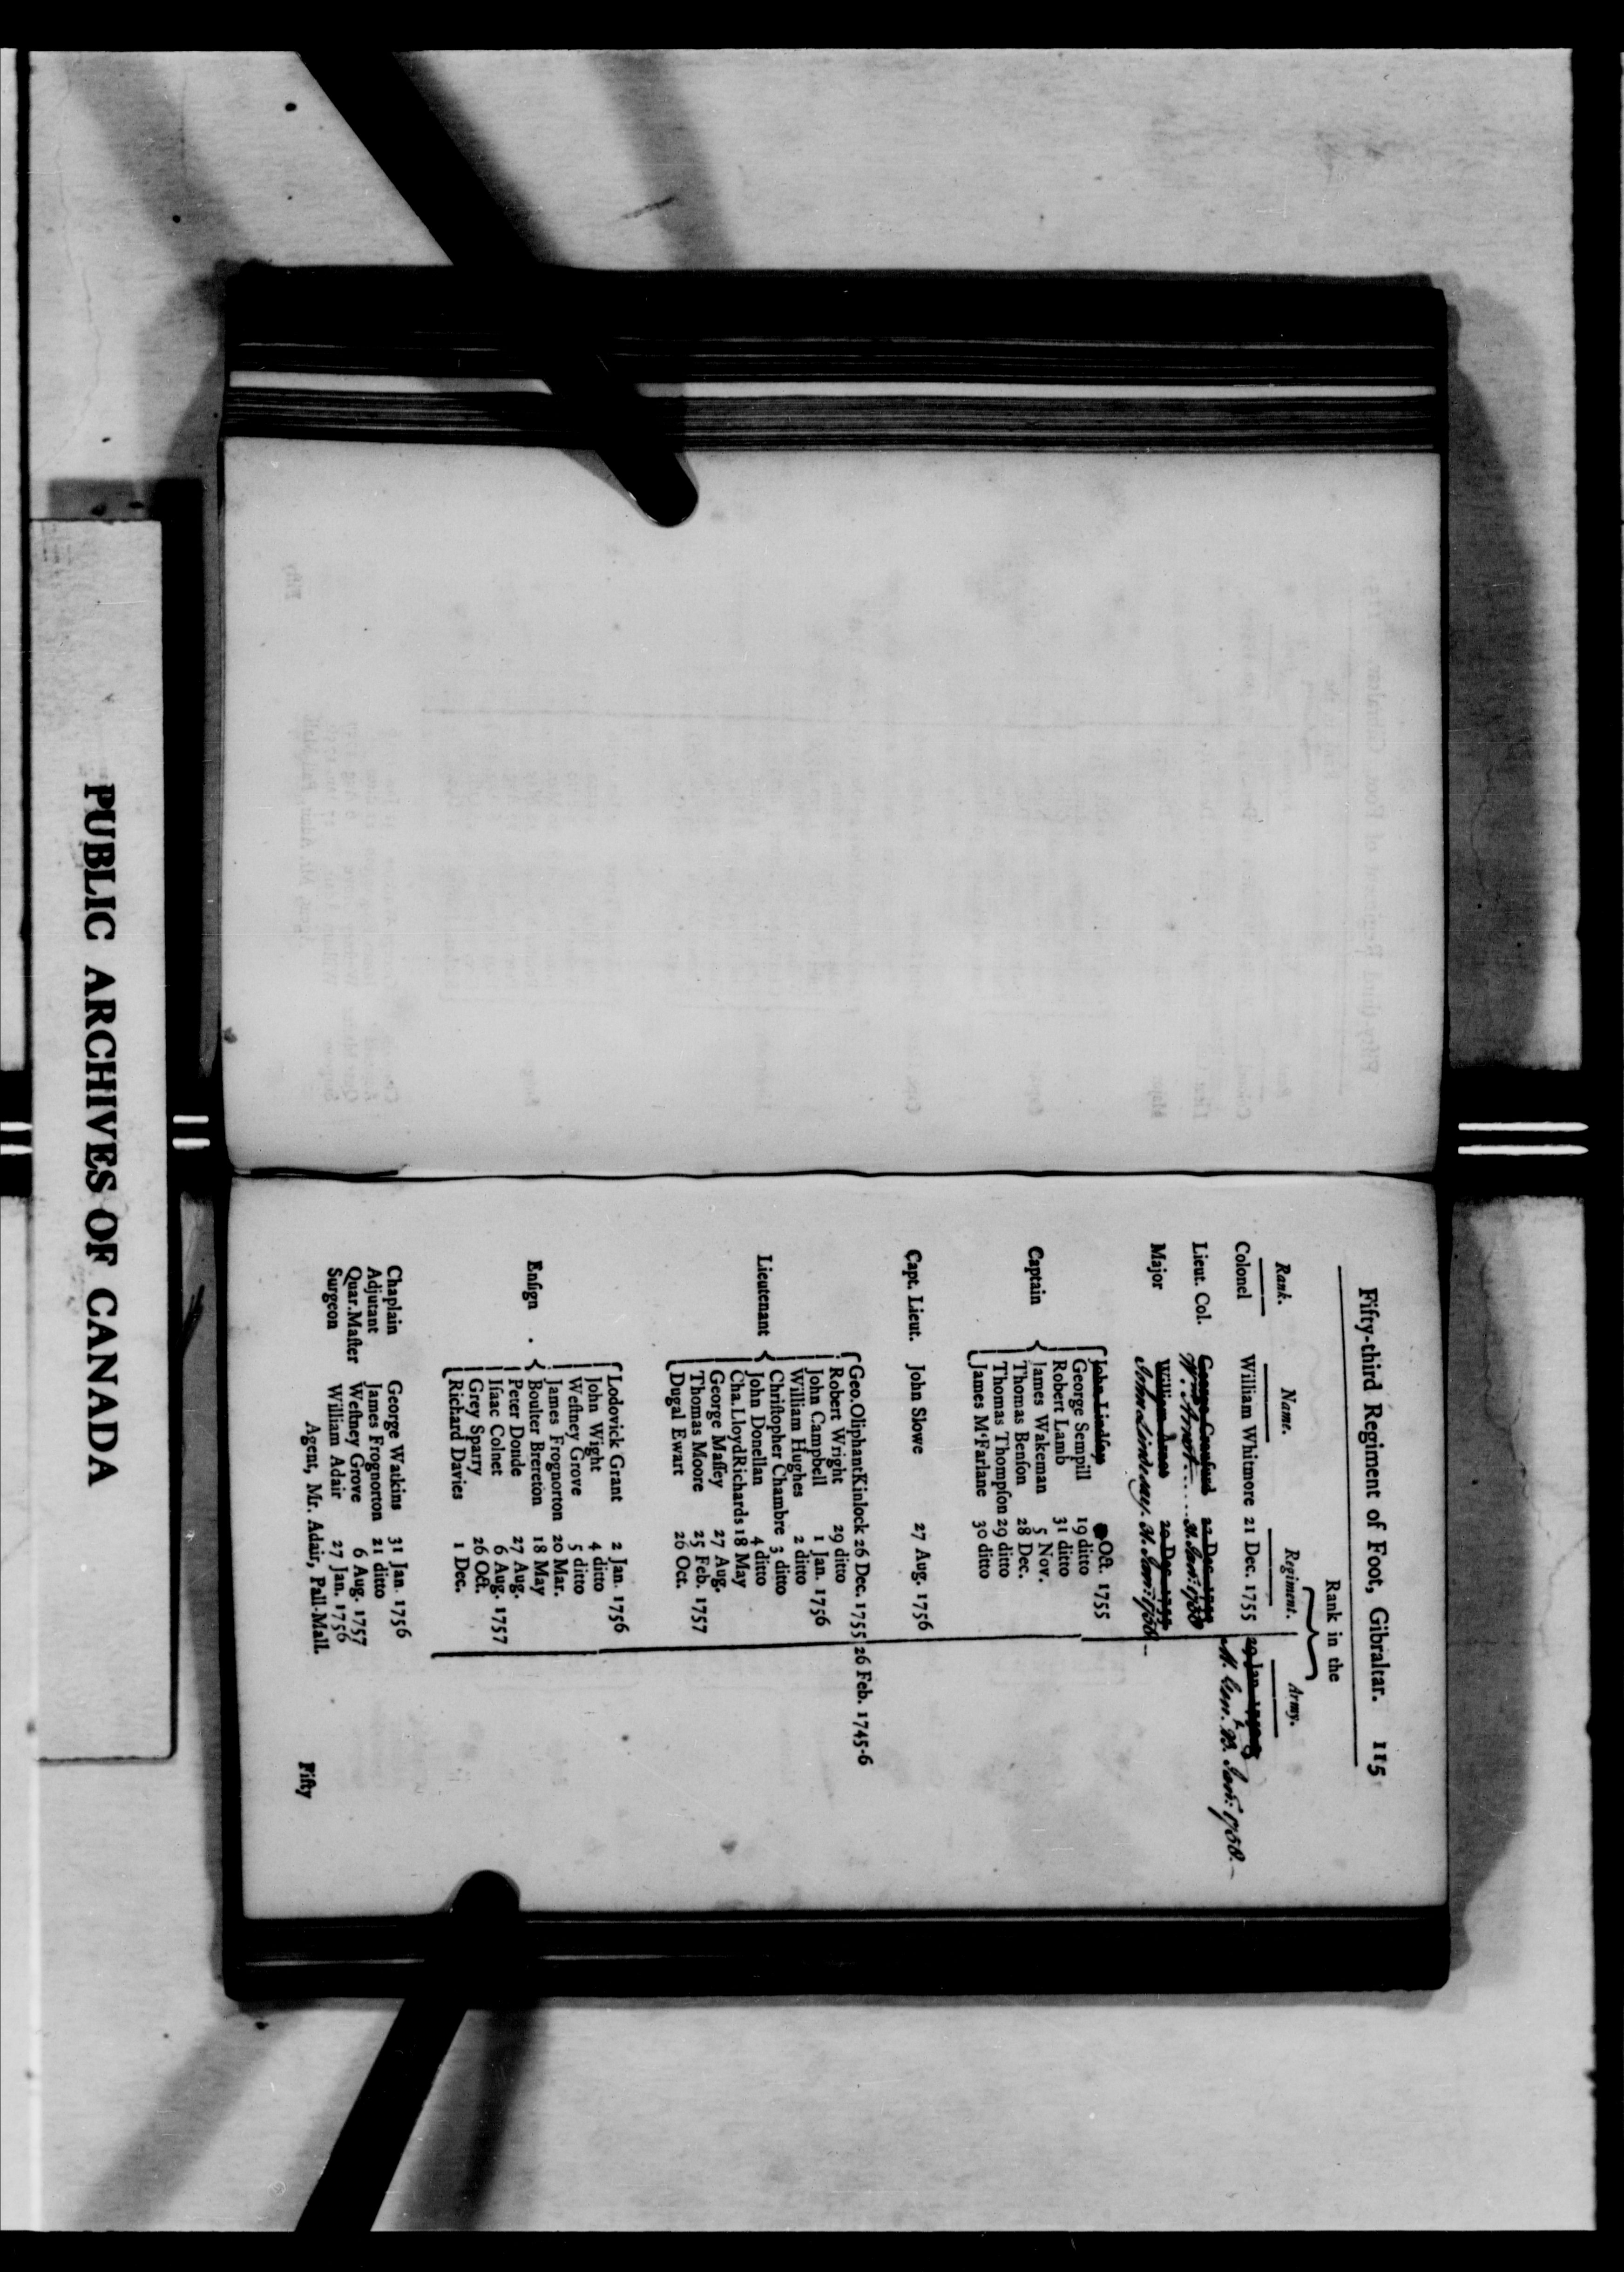 Fifty-third Regiment of Foot, Gibraltar. 115
Rank in the
Rank. Name. Regiment. Army.
Colonel William Whitmore 21 Dec. 1755 29 Jan.
M. Gen. Jan: 1758.
Lieut. Col. George Craufurd 22 Dec. 1755
Wm. Arnot
Major William 20 Dec. 1755
John Lindesay. Jan: 1758
Captain John Lindſay Oct. 1755
George Sempill 19 ditto
Robert Lamb 31 ditto
James Wakeman 5 Nov.
Thomas Benſon 28 Dec.
Thomas Thompſon 29 ditto
James M'Farlane 30 ditto
Capt. Lieut. John Slowe 27 Aug. 1756
Lieutenant Geo. Oliphant Kinlock 26 Dec. 1755 26 Feb. 1745-6
Robert Wright 29 ditto
John Campbell 1 Jan. 1756
William Hughes 2 ditto
Chriſtopher Chambre 3 ditto
John Donellan 4 ditto
Cha. Lloyd Richards 18 May
George Maſſey 27 Aug.
Thomas Moore 25 Feb. 1757
Dugal Ewart 26 Oct.
Enſign Lodovick Grant 2 Jan. 1756
John Wight 4 ditto
Weſtney Grove 5 ditto
James Frognorton 20 Mar.
Boulter Brereton 18 May
Peter Doude 27 Aug.
Iſaac Colnet 6 Aug. 1757
Grey Sparry 26 Oct.
Richard Davies 1 Dec.
Chaplain George Watkins 31 Jan. 1756
Adjutant James Frognorton 21 ditto
Quar. Maſter Weſtney Grove 6 Aug. 1757
Surgeon William Adair 27 Jan. 1756
Agent, Mr. Adair, Pall-Mall.
Fifty
PUBLIC ARCHIVES OF CANADA